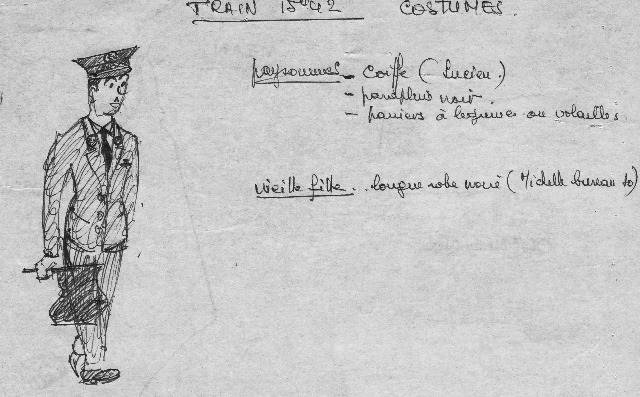 TRAIN 15H42 COSTUMES.
paysannes - Coiffe (Lucien.)
- parapluie noir.
- paniers à légumes ou volailles.
vieille fille .. longue robe noire (Michelle bureau